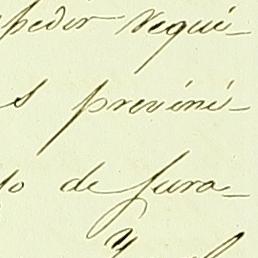 pedir requi-
s preveni-
to de Jura-
y